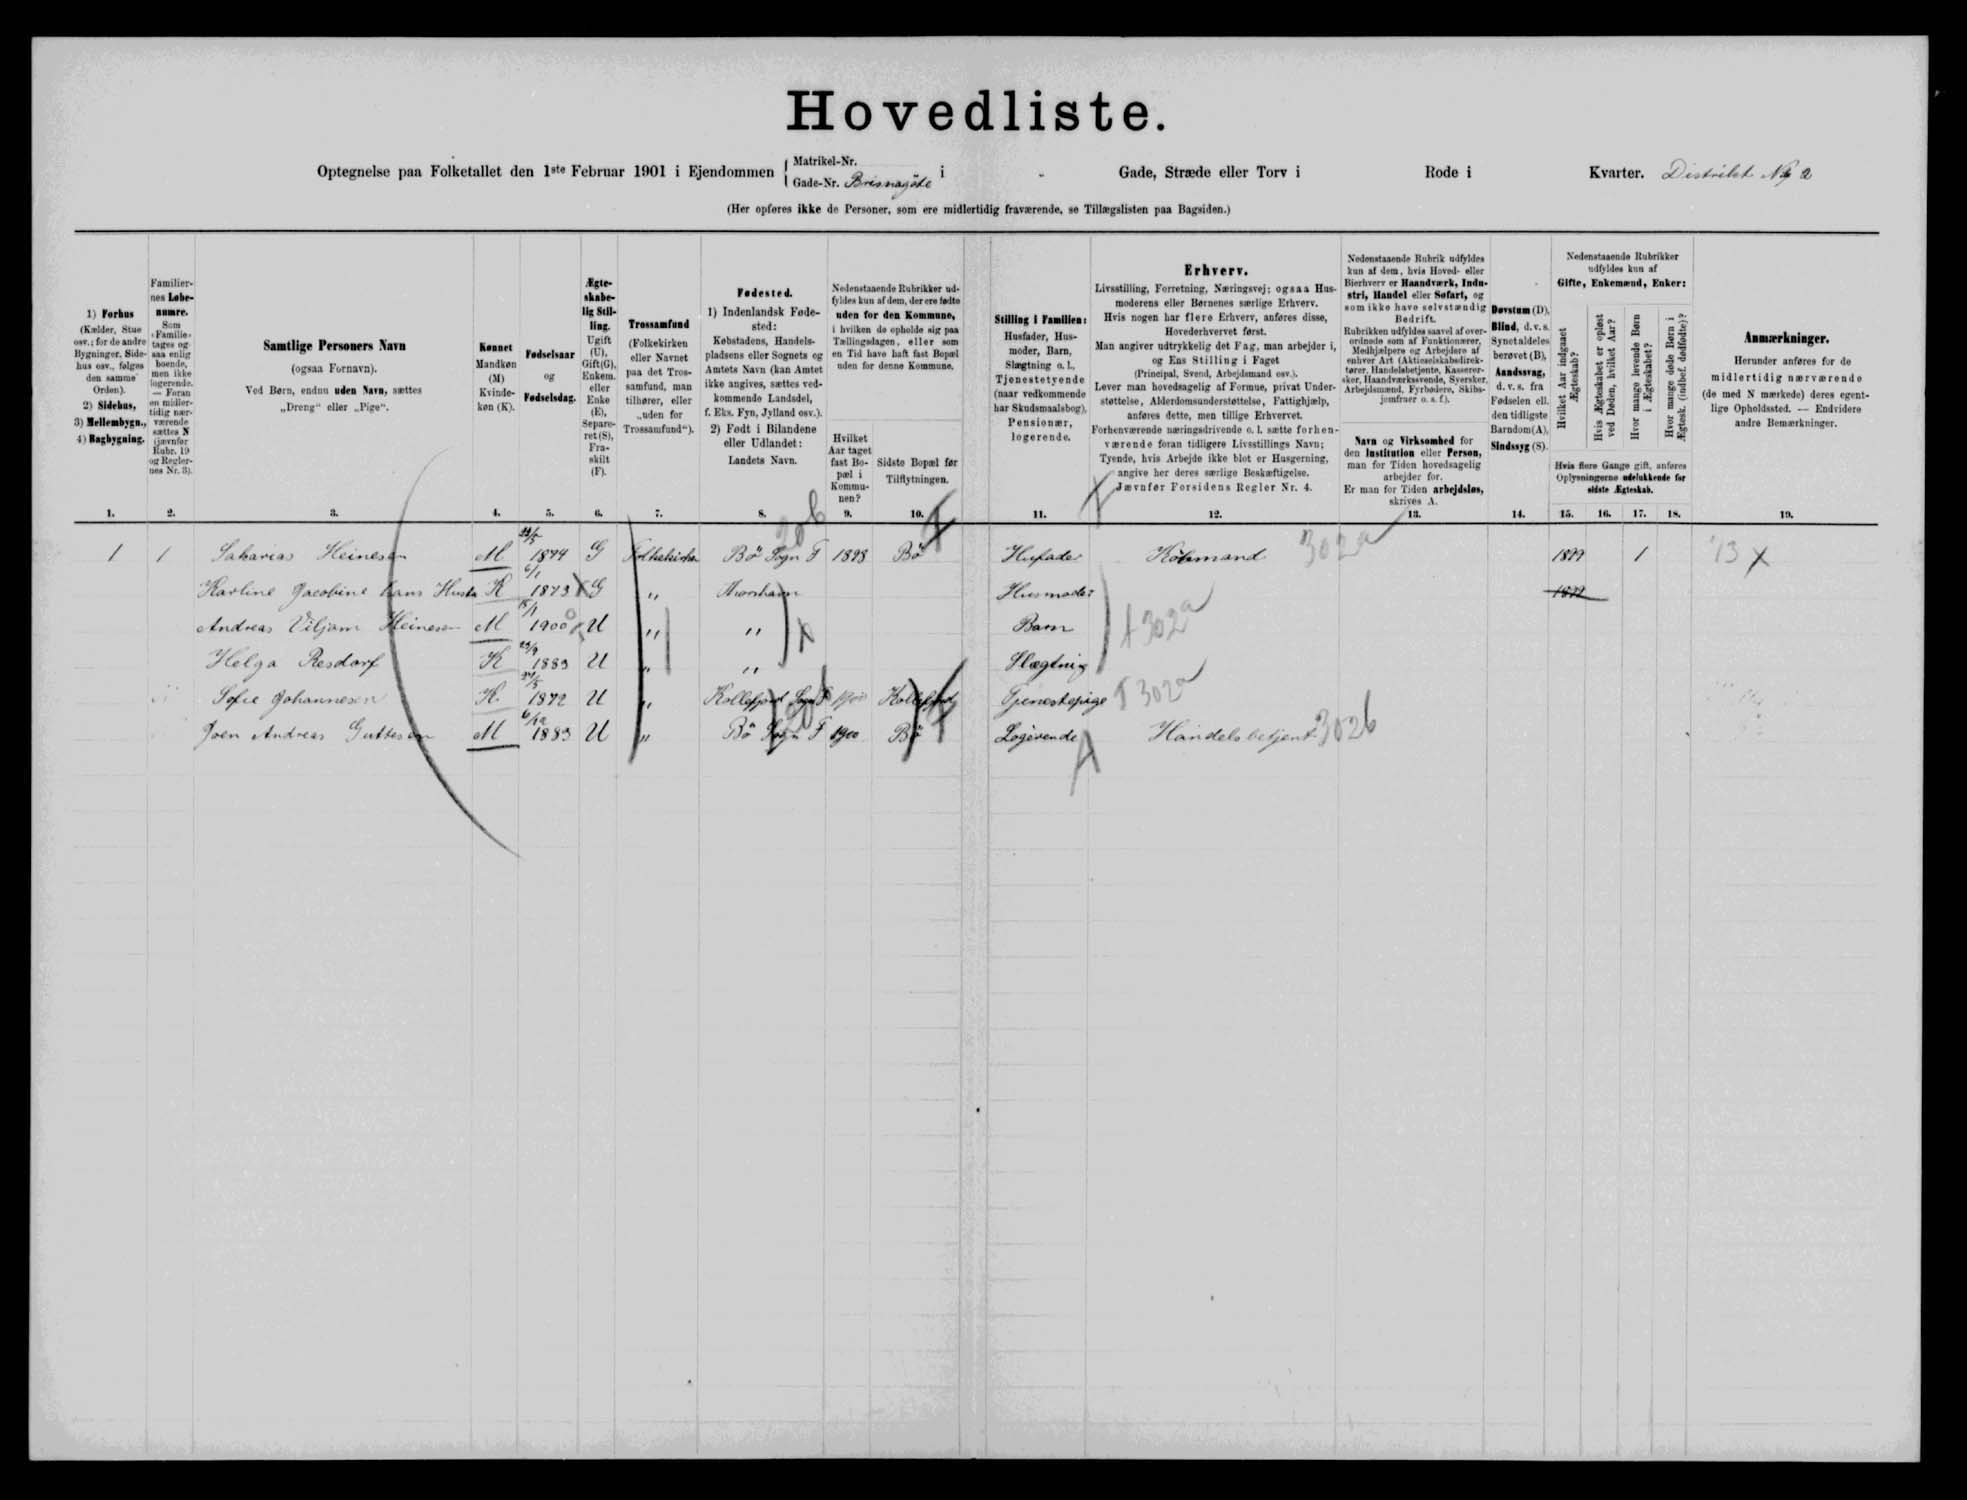 Hovedliste.
Optegnelse paa Folketallet den 1ste Februar 1901 i Ejendommen { Matrikel-Nr. Gade-Nr. Brisnagöte i " Gade, Stræde eller Torv i Rode i Kvarter. Distrikt No 2
(Her opføres ikke de Personer, som ere midlertidig fraværende, se Tillægslisten paa Bagsiden.)
1) Forhus
(Kælder, Stue
osv.; for de andre
Bygninger, Side-
hus osv., følges
den samme
Orden).
2) Sidehus,
3) Mellembygn.,
4) Bagbygning.
Familier-
nes Løbe-
numre.
Som
„Familie“
tages og-
saa enlig
boende,
men ikke
logerende.
— Foran
en midler-
tidig nær-
værende
sættes N
(jævnfør
Rubr. 19
og Regler-
nes Nr. 3).
Samtlige Personers Navn
(ogsaa Fornavn).
Ved Børn, endnu uden Navn, sættes
„Dreng“ eller „Pige“.
Kønnet
Mandkøn
(M)
Kvinde-
køn (K).
Fødselsaar
og
Fødselsdag.
Ægte-
skabe-
lig Stil-
ling.
Ugift
(U),
Gift(G),
Enkem.
eller
Enke
(E),
Separe-
ret (S),
Fra-
skilt
(F).
Trossamfund
(Folkekirken
eller Navnet
paa det Tros-
samfund, man
tilhører, eller
„uden for
Trossamfund“).
Fødested.
1) Indenlandsk Føde-
sted:
Købstadens, Handels-
pladsens eller Sognets og
Amtets Navn (kan Amtet
ikke angives, sættes ved-
kommende Landsdel,
f. Eks. Fyn, Jylland osv.).
2) Født i Bilandene
eller Udlandet:
Landets Navn.
Nedenstaaende Rubrikker ud-
fyldes kun af dem, der ere fødte
uden for den Kommune,
i hvilken de opholde sig paa
Tællingsdagen, eller som
en Tid have haft fast Bopæl
uden for denne Kommune.
Hvilket
Aar taget
fast Bo-
pæl i
Kommu-
nen?
Sidste Bopæl før
Tilflytningen.
Stilling i Familien:
Husfader, Hus-
moder, Barn,
Slægtning o. l.,
Tjenestetyende
(naar vedkommende
har Skudsmaalsbog),
Pensionær,
logerende.
Erhverv.
Livsstilling, Forretning, Næringsvej; ogsaa Hus-
moderens eller Børnenes særlige Erhverv.
Hvis nogen har flere Erhverv, anføres disse,
Hovederhvervet først.
Man angiver udtrykkelig det Fag, man arbejder i,
og Ens Stilling i Faget
(Principal, Svend, Arbejdsmand osv.).
Lever man hovedsagelig af Formue, privat Under-
støttelse, Alderdomsunderstøttelse, Fattighjælp,
anføres dette, men tillige Erhvervet.
Forhenværende næringsdrivende o. l. sætte forhen-
værende foran tidligere Livsstillings Navn;
Tyende, hvis Arbejde ikke blot er Husgerning,
angive her deres særlige Beskæftigelse.
Jævnfør Forsidens Regler Nr. 4.
Nedenstaaende Rubrik udfyldes
kun af dem, hvis Hoved- eller
Bierhverv er Haandværk, Indu-
stri, Handel eller Søfart, og
som ikke have selvstændig
Bedrift.
Rubrikken udfyldes saavel af over-
ordnede som af Funktionærer,
Medhjælpere og Arbejdere af
enhver Art (Aktieselskabsdirek-
tører, Handelsbetjente, Kasserer-
sker, Haandværkssvende, Syersker,
Arbejdsmænd, Fyrbødere, Skibs-
jomfruer o. s. f.).
Navn og Virksomhed for
den Institution eller Person,
man for Tiden hovedsagelig
arbejder for.
Er man for Tiden arbejdsløs,
skrives A.
Døvstum (D),
Blind, d. v. s.
Synet aldeles
berøvet (B),
Aandssvag,
d. v. s. fra
Fødselen ell.
den tidligste
Barndom(A),
Sindssyg (S).
Nedenstaaende Rubrikker
udfyldes kun af
Gifte, Enkemænd, Enker:
Hvilket Aar indgaaet
Ægteskab?
Hvis Ægteskabet er opløst
ved Døden, hvilket Aar?
Hvor mange levende Børn
i Ægteskabet?
Hvor mange døde Børn i
Ægtesk. (indbef. dødfødte)?
Hvis flere Gange gift, anføres
Oplysningerne udelukkende for
sidste Ægteskab.
Anmærkninger.
Herunder anføres for de
midlertidig nærværende
(de med N mærkede) deres egent-
lige Opholdssted. — Endvidere
andre Bemærkninger.
1. 2. 3. 4. 5. 6. 7. 8. 9. 10. 11. 12. 13. 14. 15. 16. 17. 18. 19.
1 1 Sakarias Heinesen M 1874 G Folkekirken Bö Sogn F 1898 Bö Husfader Köbmand 302a 1899 1 13 x
Karline Jacobine hans Hustru K 6/1 1873 G " Thorshavn Husmoder 1899
Andreas Viljam Heinesen M 1900 U " " Barn 302a
Helga Resdorf K 1883 U " " Slægtning
Sofie Johannesen K 1872 U " Kollefjord Sogn F 1900 Kollefjord Tjenestepige 302a
Joen Andreas Guttesen M 6/12 1883 U " Bö Sogn F 1900 Bö Logerende Handelsbetjent 302b